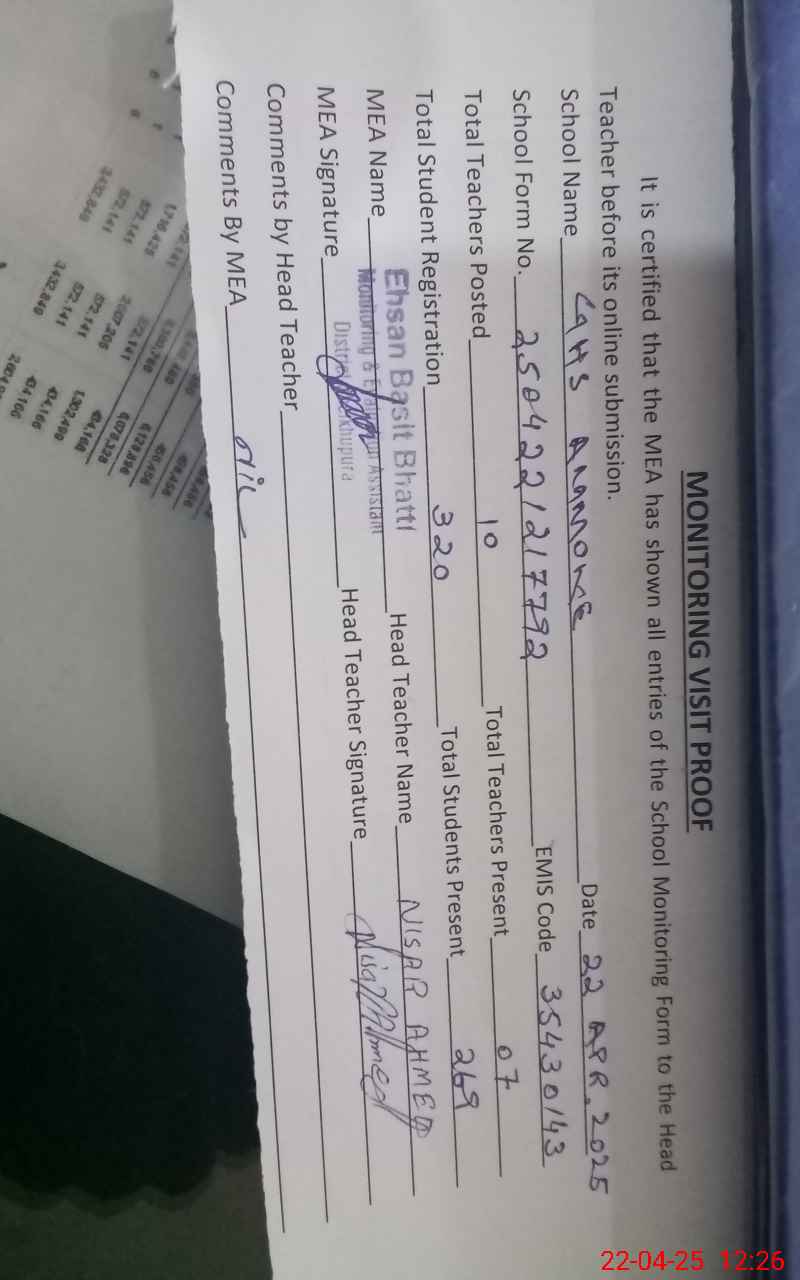 MONITORING VISIT PROOF
It is certified that the MEA has shown all entries of the School Monitoring Form to the Head
Teacher before its online submission.
School Name Date 22 APR. 2025
School Form No. 2504221217792 EMIS Code 35430143
Total Teachers Posted 10 Total Teachers Present 07
Total Student Registration 320 Total Students Present 269
MEA Name Ehsan Basit Bhatti Head Teacher Name NISAR AHMED
Monitoring & Evaluation Assistant
MEA Signature District Head Teacher Signature Nisar Ahmed
Comments by Head Teacher
Comments By MEA Nil
22-04-25 12:26